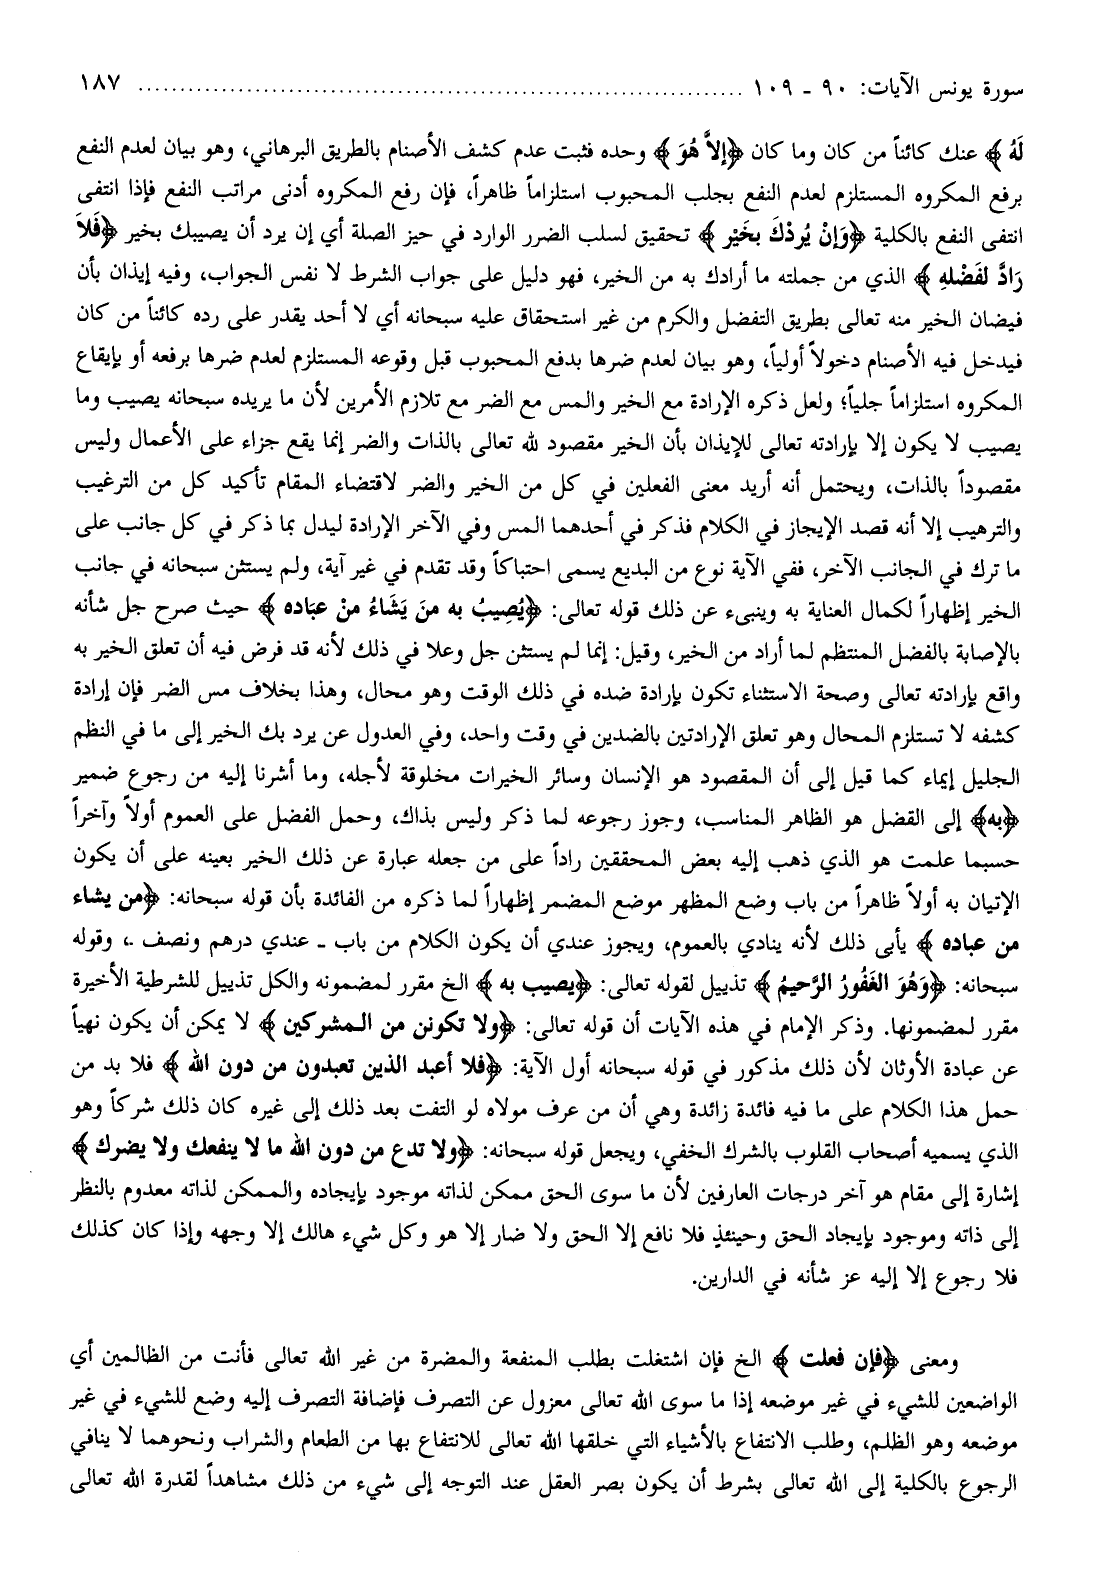 سورة يونس الآيات: ٩٠ ـ ١٠٩ ........................................................................ ١٨٧
لَهُ ﴾ عنك كائناً من كان وما كان ﴿إلاَّ هُوَ ﴾ وحده فثبت عدم كشف الأصنام بالطريق البرهاني، وهو بيان لعدم النفع
برفع المكروه المستلزم لعدم النفع بجلب المحبوب استلزاماً ظاهراً، فإن رفع المكروه أدنى مراتب النفع فإذا انتفى
انتفى النفع بالكلية ﴿وَإنْ يُردْكَ بخَيْر ﴾ تحقيق لسلب الضرر الوارد في حيز الصلة أي إن يرد أن يصيبك بخير ﴿فَلاَ
رَادَّ لفَضْلهِ ﴾ الذي من جملته ما أرادك به من الخير، فهو دليل على جواب الشرط لا نفس الجواب، وفيه إيذان بأن
فيضان الخير منه تعالى بطريق التفضل والكرم من غير استحقاق عليه سبحانه أي لا أحد يقدر على رده كائناً من كان
فيدخل فيه الأصنام دخولاً أولياً، وهو بيان لعدم ضرها بدفع المحبوب قبل وقوعه المستلزم لعدم ضرها برفعه أو بإيقاع
المكروه استلزاماً جلياً؛ ولعل ذكره الإرادة مع الخير والمس مع الضر مع تلازم الأمرين لأن ما يريده سبحانه يصيب وما
يصيب لا يكون إلا بإرادته تعالى للإيذان بأن الخير مقصود لله تعالى بالذات والضر إنما يقع جزاء على الأعمال وليس
مقصوداً بالذات، ويحتمل أنه أريد معنى الفعلين في كل من الخير والضر لاقتضاء المقام تأكيد كل من الترغيب
والترهيب إلا أنه قصد الإيجاز في الكلام فذكر في أحدهما المس وفي الآخر الإرادة ليدل بما ذكر في كل جانب على
ما ترك في الجانب الآخر، ففي الآية نوع من البديع يسمى احتباكاً وقد تقدم في غير آية، ولم يستثن سبحانه في جانب
الخير إظهاراً لكمال العناية به وينبىء عن ذلك قوله تعالى: ﴿يُصِيبُ به منَ يَشَاءُ منْ عبَاده ﴾ حيث صرح جل شأنه
بالإصابة بالفضل المنتظم لما أراد من الخير، وقيل: إنما لم يستثن جل وعلا في ذلك لأنه قد فرض فيه أن تعلق الخير به
واقع بإرادته تعالى وصحة الاستثناء تكون بإرادة ضده في ذلك الوقت وهو محال، وهذا بخلاف مس الضر فإن إرادة
كشفه لا تستلزم المحال وهو تعلق الإرادتين بالضدين في وقت واحد، وفي العدول عن يرد بك الخير إلى ما في النظم
الجليل إيماء كما قيل إلى أن المقصود هو الإنسان وسائر الخيرات مخلوقة لأجله، وما أشرنا إليه من رجوع ضمير
﴿به﴾ إلى القضل هو الظاهر المناسب، وجوز رجوعه لما ذكر وليس بذاك، وحمل الفضل على العموم أولاً وآخراً
حسبما علمت هو الذي ذهب إليه بعض المحققين راداً على من جعله عبارة عن ذلك الخير بعينه على أن يكون
الإتيان به أولاً ظاهراً من باب وضع المظهر موضع المضمر إظهاراً لما ذكره من الفائدة بأن قوله سبحانه: ﴿من يشاء
من عباده ﴾ يأبى ذلك لأنه ينادي بالعموم، ويجوز عندي أن يكون الكلام من باب ـ عندي درهم ونصف ـ، وقوله
سبحانه: ﴿وَهُوَ الغَفُورُ الرَّحيمُ ﴾ تذييل لقوله تعالى: ﴿يصيب به ﴾ الخ مقرر لمضمونه والكل تذييل للشرطية الأخيرة
مقرر لمضمونها. وذكر الإمام في هذه الآيات أن قوله تعالى: ﴿ولا تكونن من المشركين ﴾ لا يمكن أن يكون نهياً
عن عبادة الأوثان لأن ذلك مذكور في قوله سبحانه أول الآية: ﴿فلا أعبد الذين تعبدون من دون الله ﴾ فلا بد من
حمل هذا الكلام على ما فيه فائدة زائدة وهي أن من عرف مولاه لو التفت بعد ذلك إلى غيره كان ذلك شركاً وهو
الذي يسميه أصحاب القلوب بالشرك الخفي، ويجعل قوله سبحانه: ﴿ولا تدع من دون الله ما لا ينفعك ولا يضرك ﴾
إشارة إلى مقام هو آخر درجات العارفين لأن ما سوى الحق ممكن لذاته موجود بإيجاده والممكن لذاته معدوم بالنظر
إلى ذاته وموجود بإيجاد الحق وحينئذٍ فلا نافع إلا الحق ولا ضار إلا هو وكل شيء هالك إلا وجهه وإذا كان كذلك
فلا رجوع إلا إليه عز شأنه في الدارين.
ومعنى ﴿فإن فعلت ﴾ الخ فإن اشتغلت بطلب المنفعة والمضرة من غير الله تعالى فأنت من الظالمين أي
الواضعين للشيء في غير موضعه إذا ما سوى الله تعالى معزول عن التصرف فإضافة التصرف إليه وضع للشيء في غير
موضعه وهو الظلم، وطلب الانتفاع بالأشياء التي خلقها الله تعالى للانتفاع بها من الطعام والشراب ونحوهما لا ينافي
الرجوع بالكلية إلى الله تعالى بشرط أن يكون بصر العقل عند التوجه إلى شيء من ذلك مشاهداً لقدرة الله تعالى